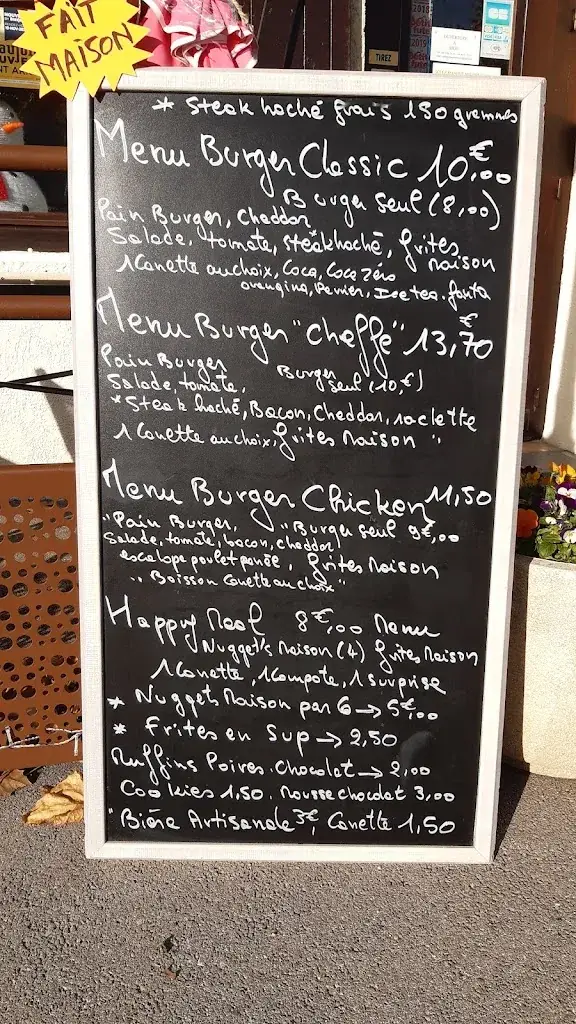 FAIT
MAISON
TIREZ
* Steak haché frais 180 grammes
Menu Burger Classic 10,€00
Burger seul (8,00)
Pain Burger, Cheddar
Salade, tomate, steak haché, frites
maison
1 Canette au choix, Coca, Coca zéro
orangina, Perrier, Ice tea, fanta
Menu Burger "Cheffe" 13,€70
Pain Burger
Burger seul (10,€)
Salade, tomate,
*Steak haché, Bacon, Cheddar, raclette
1 Canette au choix, frites maison "
Menu Burger Chicken 11,50
"Pain Burger, "Burger seul 9€,00
Salade, tomate, bacon, cheddar
escalope poulet panée, frites maison
" Boisson Canette au choix"
Happy Meal 8€,00 Menu
Nugget's maison (4) frites maison
1 Canette, 1 Compote, 1 surprise
* Nuggets maison par 6 → 5€,00
* Frites en sup → 2,50
Muffins Poires.Chocolat → 2,00
Cookies 1,50. Mousse chocolat 3,00
"Bière Artisanale 3€, Canette 1,50